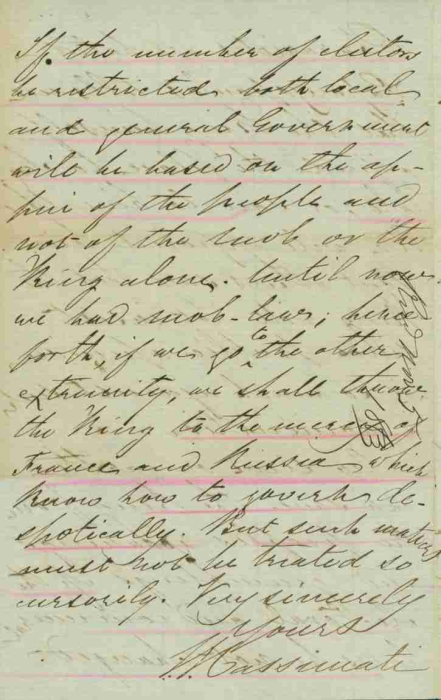 If the number of electors
be restricted both local
and general Government
will be based on the ap-
pui of the people and
not of the mob or the
King alone. Until now
we had mob-laws; hence
forth, if we go to the other
extremity, we shall throw
the King to the mercy of
France and Russia which
know how to govern de-
spotically. But such matters
must not be treated so
cursorily. Very sincerely
Yours
Cassimati